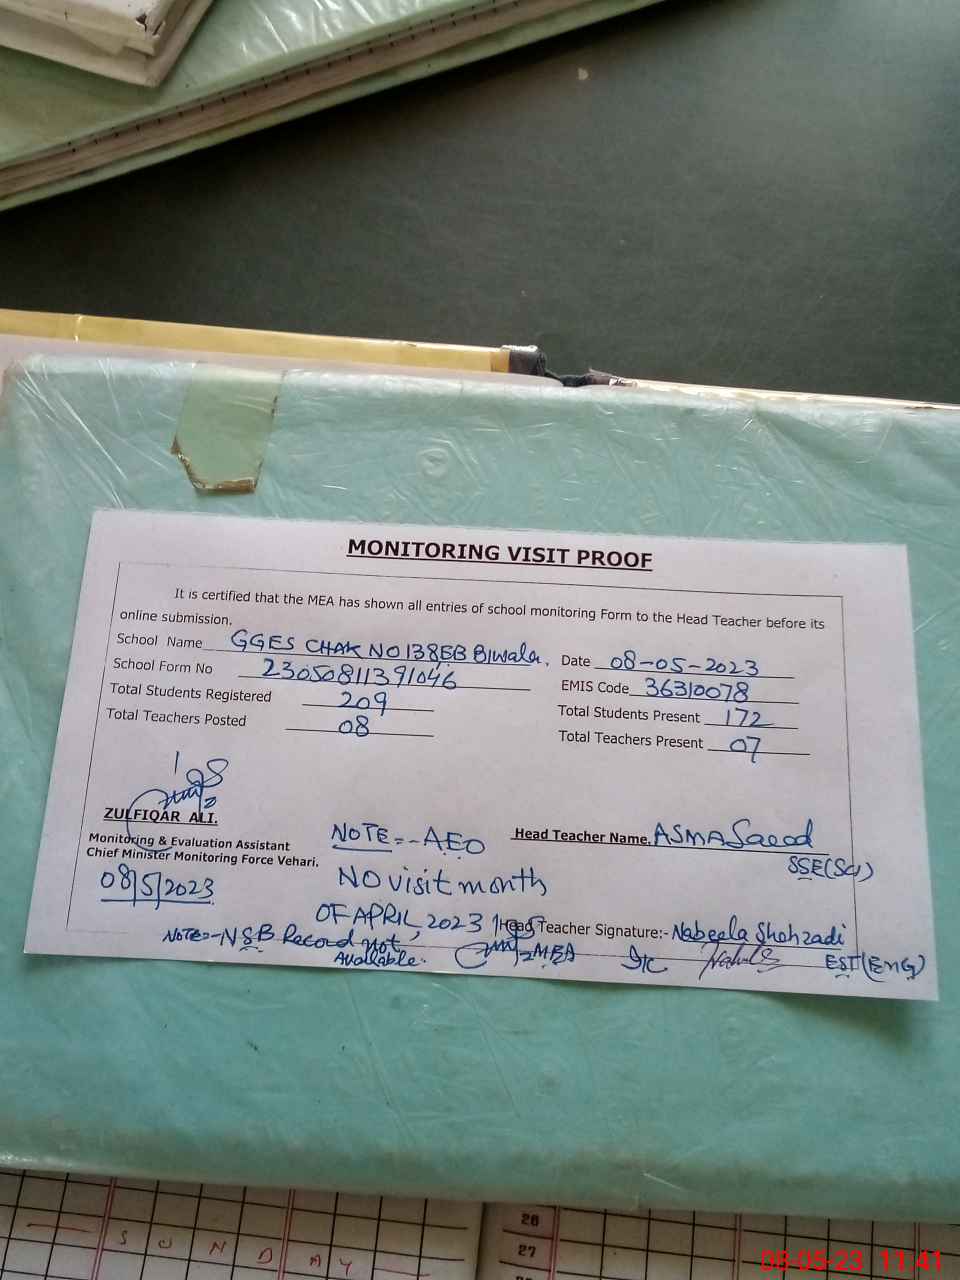 MONITORING VISIT PROOF
It is certified that the MEA has shown all entries of school monitoring Form to the Head Teacher before its
online submission.
School Name GGES CHAK NO 138EB Biwala. Date 08-05-2023
School Form No 23050811391046 EMIS Code 36310078
Total Students Registered 209 Total Students Present 172
Total Teachers Posted 08 Total Teachers Present 07
ZULFIQAR ALI.
Monitoring & Evaluation Assistant
Chief Minister Monitoring Force Vehari.
08/5/2023
NOTE:- AEO
NO visit month
OF APRIL, 2023
Head Teacher Name. ASMA Saeed
SSE(Sci)
Head Teacher Signature:- Nabeela Shahzadi
EST(EMG)
NOTE:- NSB Record not
Available.
MEA
I/C
SUNDAY
26
27
08-05-23 11:41